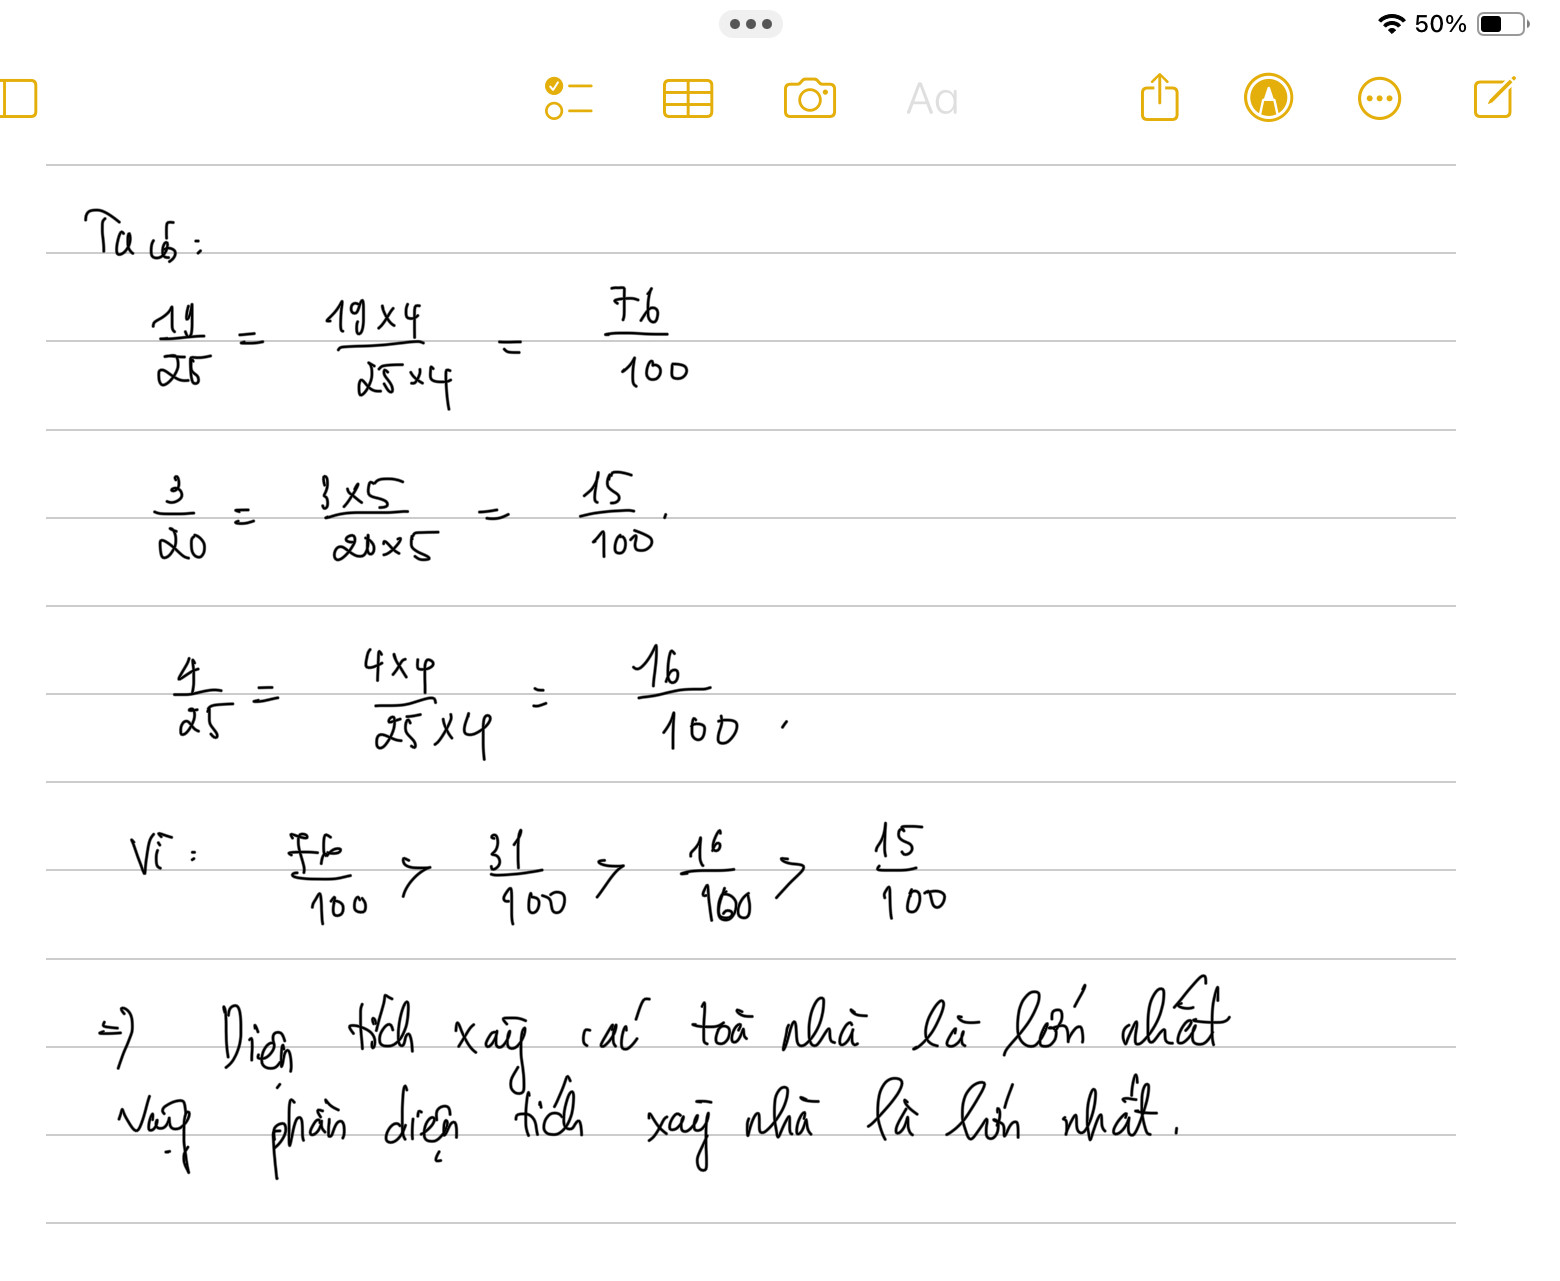 50%
Aa
Ta có:
19/25 = 19×4/25×4 = 76/100
3/20 = 3×5/20×5 = 15/100.
4/25 = 4×4/25×4 = 16/100.
Vì: 76/100 > 31/100 > 16/100 > 15/100
=) Diện tích xây các toà nhà là lớn nhất
Vậy phần diện tích xây nhà là lớn nhất.